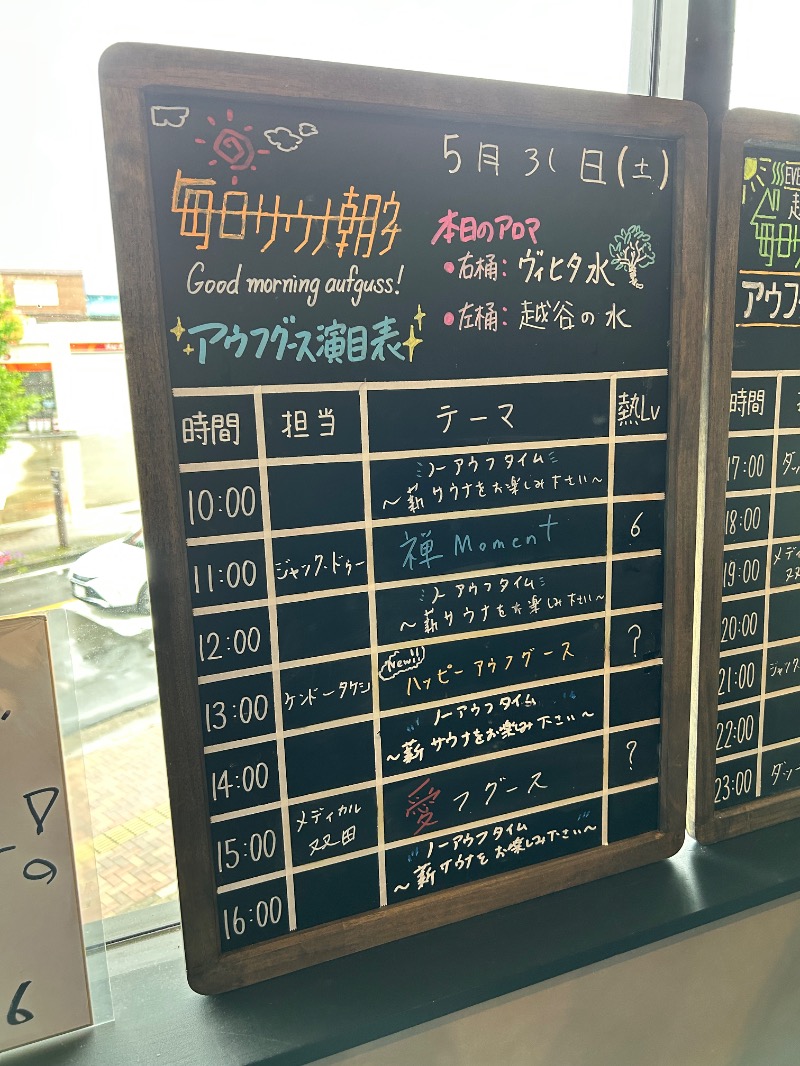 5月31日(土)
毎日サウナ朝子
Good morning aufguss!
アウフグース演目表
本日のアロマ
・右桶: ヴィヒタ水
・左桶: 越谷の水
時間 担当 テーマ 熱Lv
10:00 ノーアウフタイム
〜薪サウナをお楽しみ下さい〜
11:00 ジャック・ドゥー 禅 Moment 6
12:00 ノーアウフタイム
〜薪サウナをお楽しみ下さい〜
13:00 ケンドータケシ New!! ハッピーアウフグース ?
14:00 ノーアウフタイム
〜薪サウナをお楽しみ下さい〜
15:00 メディカル双田 愛フグース ?
16:00 ノーアウフタイム
〜薪サウナをお楽しみ下さい〜
EVE
越
毎日サ
アウフ
時間
17:00 ダン
18:00
19:00 メデ
双
20:00
21:00 ジャック
22:00
23:00 ダン
6